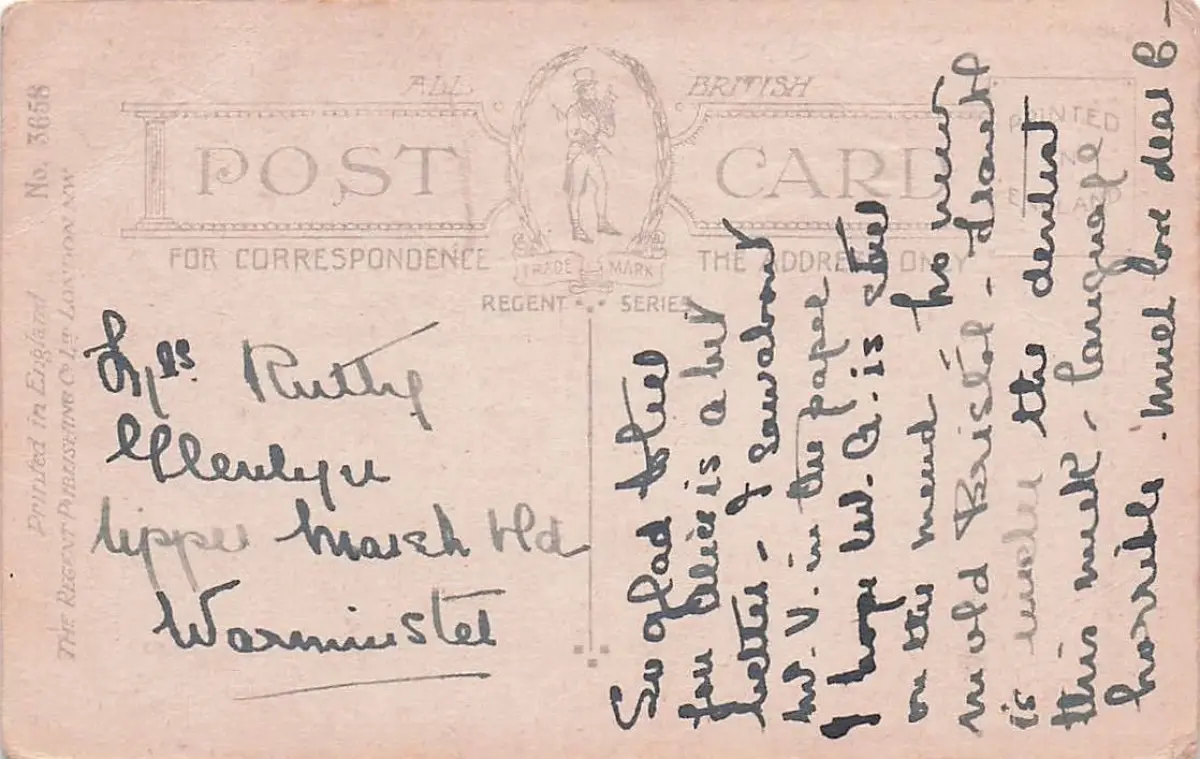 ALL BRITISH
POST CARD
FOR CORRESPONDENCE THE ADDRESS ONLY
TRADE MARK
REGENT SERIES
PRINTED
IN
ENGLAND
No. 3658
Printed in England
THE REGENT PUBLISHING Co LTD LONDON NW
Mrs. Ruttly
Glenlyn
Upper Marsh Rd
Warminster
So glad to feel
you Alice is a bit
better - I saw about
W. V. in the paper
I hope W. A. is still
on the mend. no news
in old Bristol -
is under the dentist
this week, language
horrible. Much love dear C -